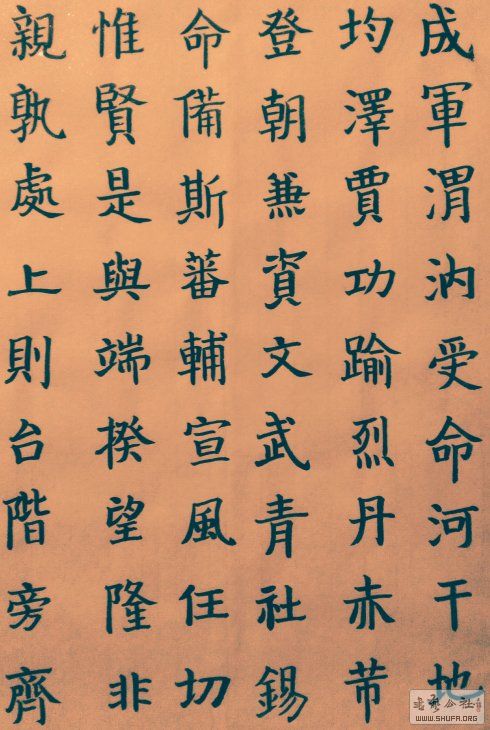 成軍渭汭受命河干地
均澤賈功踰烈丹赤芾
登朝兼資文武青社錫
命備斯蕃輔宣風任切
惟賢是與端揆望隆非
親孰處上則台階旁齊
WWW.SHUFA.ORG